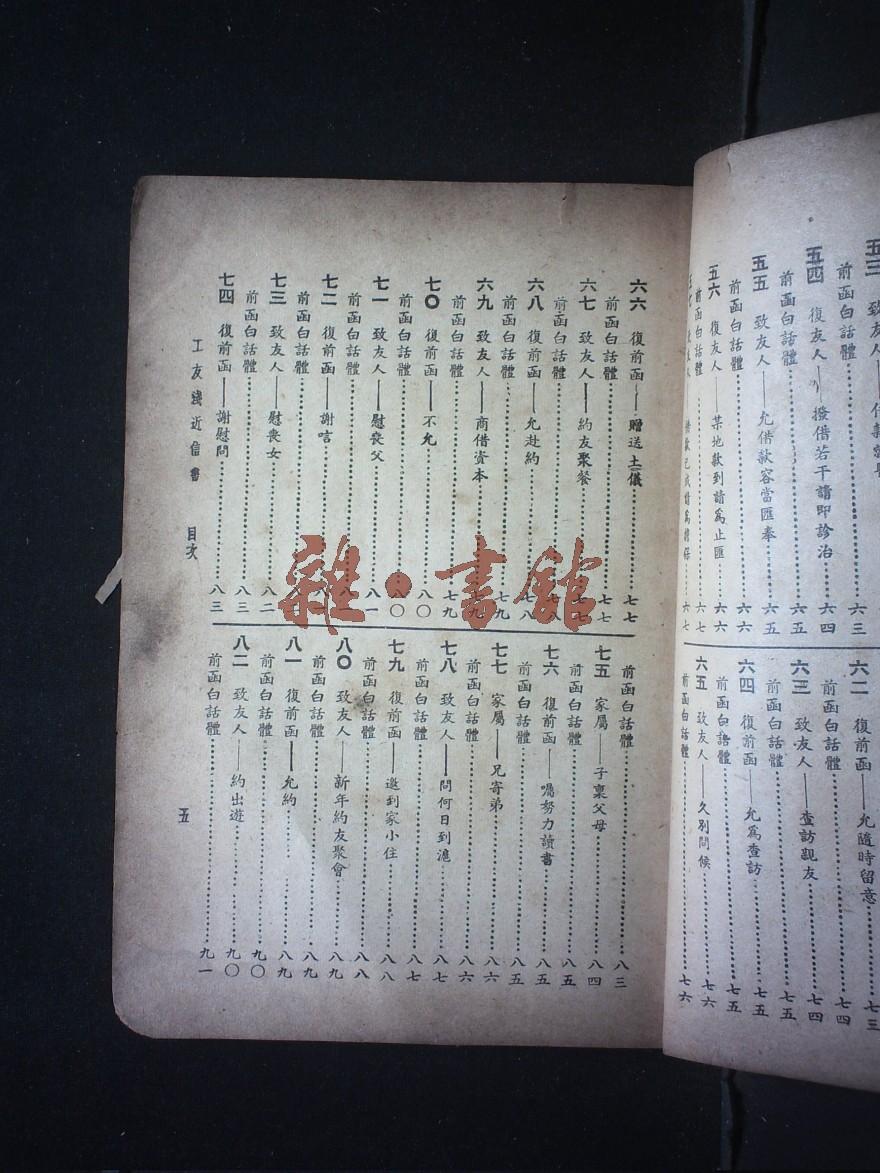 五四 復友人——撥借若干請即診治……六四
前函白話體……六五
五五 致友人——允借款容當匯奉……六五
前函白話體……六六
五六 復友人——某地款到請爲止匯……六六
前函白話體……六七
六二 復前函——允隨時留意……七三
前函白話體……七四
六三 致友人——查訪親友……七四
前函白話體……七五
六四 復前函——允爲查訪……七五
前函白話體……七五
六五 致友人——久別問候……七六
前函白話體……七六
六六 復前函——贈送土儀……七七
前函白話體……七七
六七 致友人——約友聚餐……七七
前函白話體
六八 復前函——允赴約……七八
前函白話體
六九 致友人——商借資本……七九
前函白話體……七九
七〇 復前函——不允……八〇
前函白話體……八〇
七一 致友人——慰喪父……八一
前函白話體
七二 復前函——謝唁
前函白話體
七三 致友人——慰喪女……八二
前函白話體……八三
七四 復前函——謝慰問……八三
前函白話體……八三
七五 家屬——子稟父母……八四
前函白話體……八五
七六 復前函——囑努力讀書……八五
前函白話體……八五
七七 家屬——兄寄弟……八六
前函白話體……八六
七八 致友人——問何日到滬……八七
前函白話體……八七
七九 復前函——邀到家小住……八八
前函白話體……八八
八〇 致友人——新年約友聚會……八九
前函白話體……八九
八一 復前函——允約……八九
前函白話體……九〇
八二 致友人——約出遊……九〇
前函白話體……九一
工友淺近信書 目次
五
雜·書館